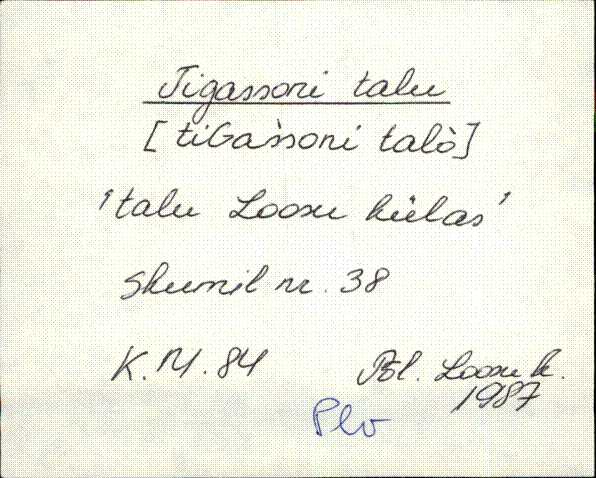 Tigassoni talu
[tiGas̀soni talò]
'talu Loosu külas'
Skumil nr. 38
K.M. 84 Põl. Loosu k.
1987
Plv